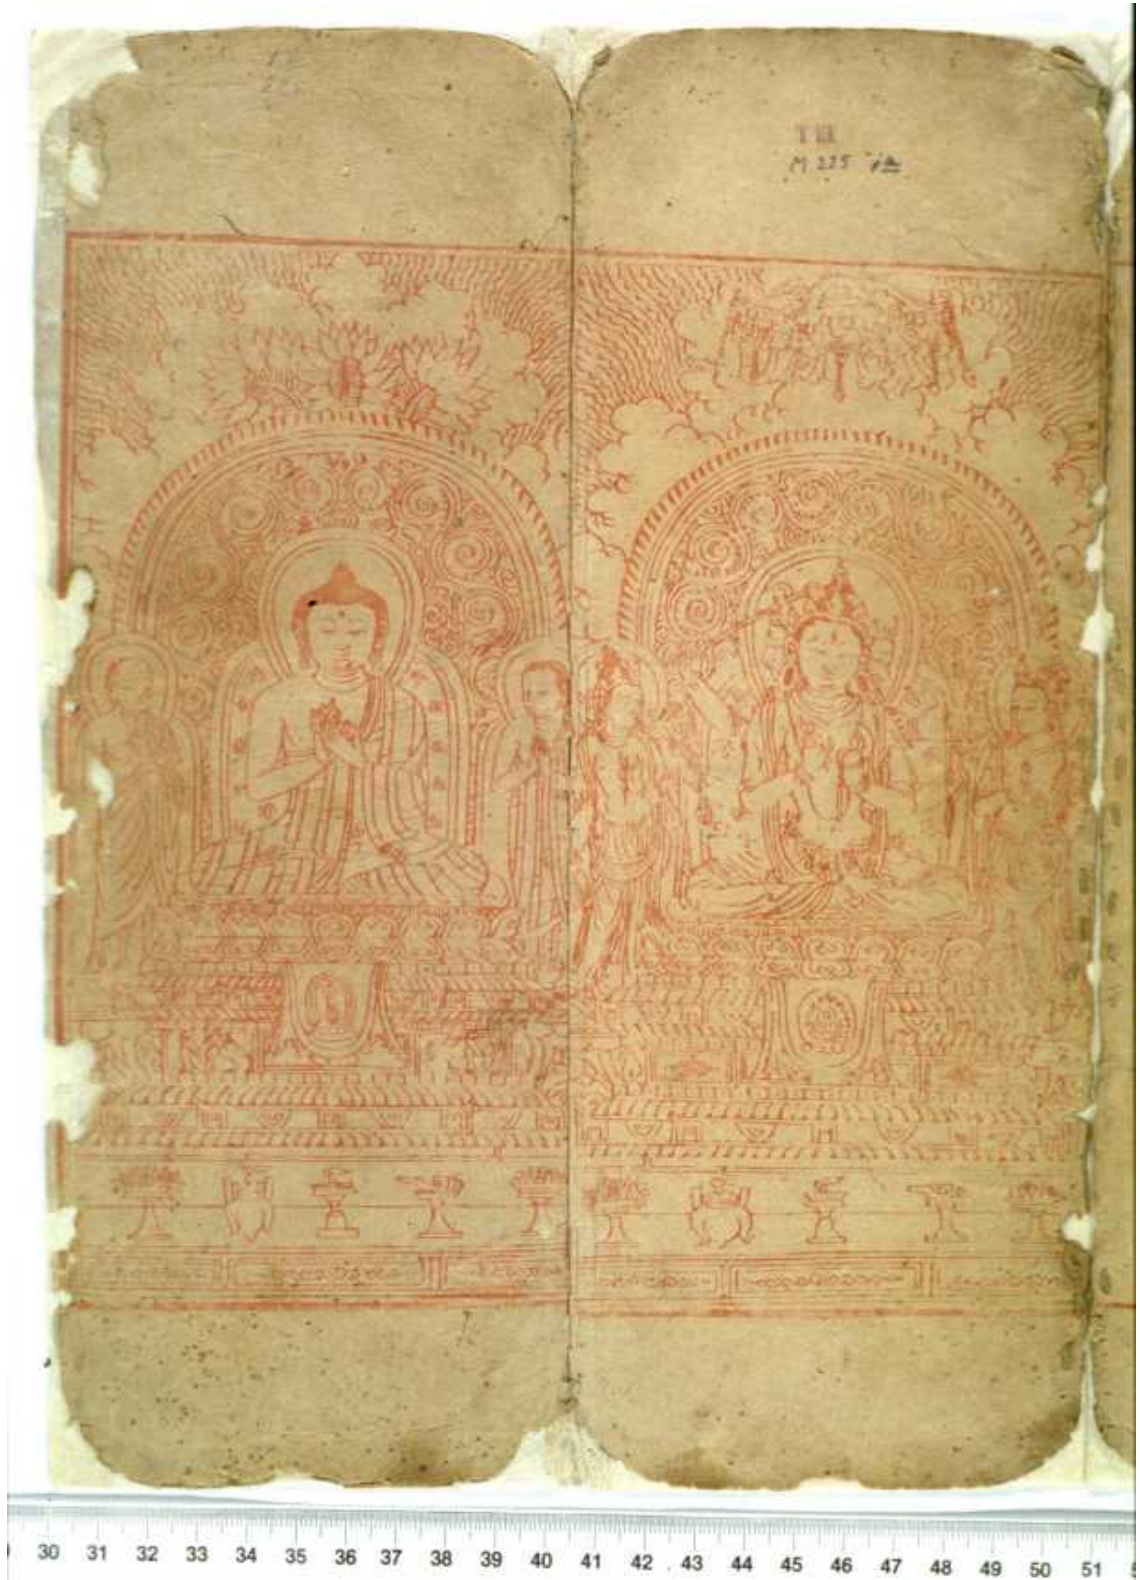 T III
M. 225
30 31 32 33 34 35 36 37 38 39 40 41 42 43 44 45 46 47 48 49 50 51